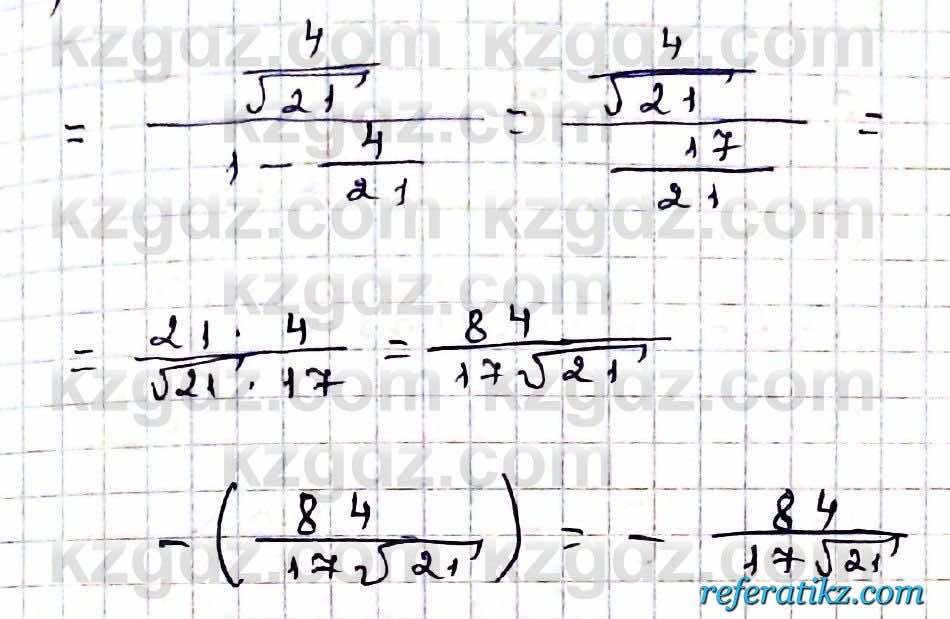 = (4/√21) / (1 - 4/21) = (4/√21) / (17/21) =
= (21 · 4) / (√21 · 17) = 84 / (17√21)
- (84 / (17√21)) = - 84 / (17√21)
kzgdz.com kzgdz.com
kzgdz.com kzgdz.com
kzgdz.com
kzgdz.com kzgdz.com
kzgdz.com
kzgdz.com kzgdz.com
referatikz.com